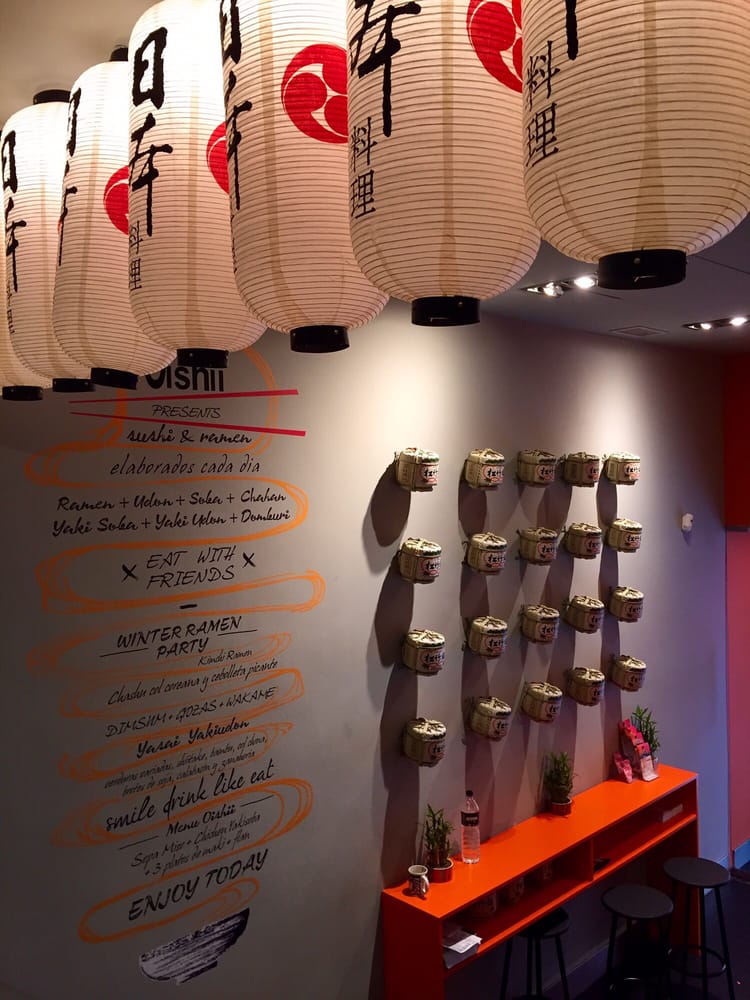 日本
料理
日本
料理
日本
料理
Oishii
PRESENTS
sushi & ramen
elaborados cada dia
Ramen + Udon + Soba + Chahan
Yaki Soba + Yaki Udon + Domburi
x EAT WITH x
FRIENDS
WINTER RAMEN
PARTY
Kimchi Ramen
Chashu col coreana y cebolleta picante
DIMSUM + GYOZAS + WAKAME
Yasai Yakiudon
verduras variadas, shiitake, bambu, col china,
brotes de soja, calabacin y zanahoria
smile drink like eat
Menu Oishii
Sopa Miso + Chicken Yakisoba
+ 3 platos de maki + flan
ENJOY TODAY